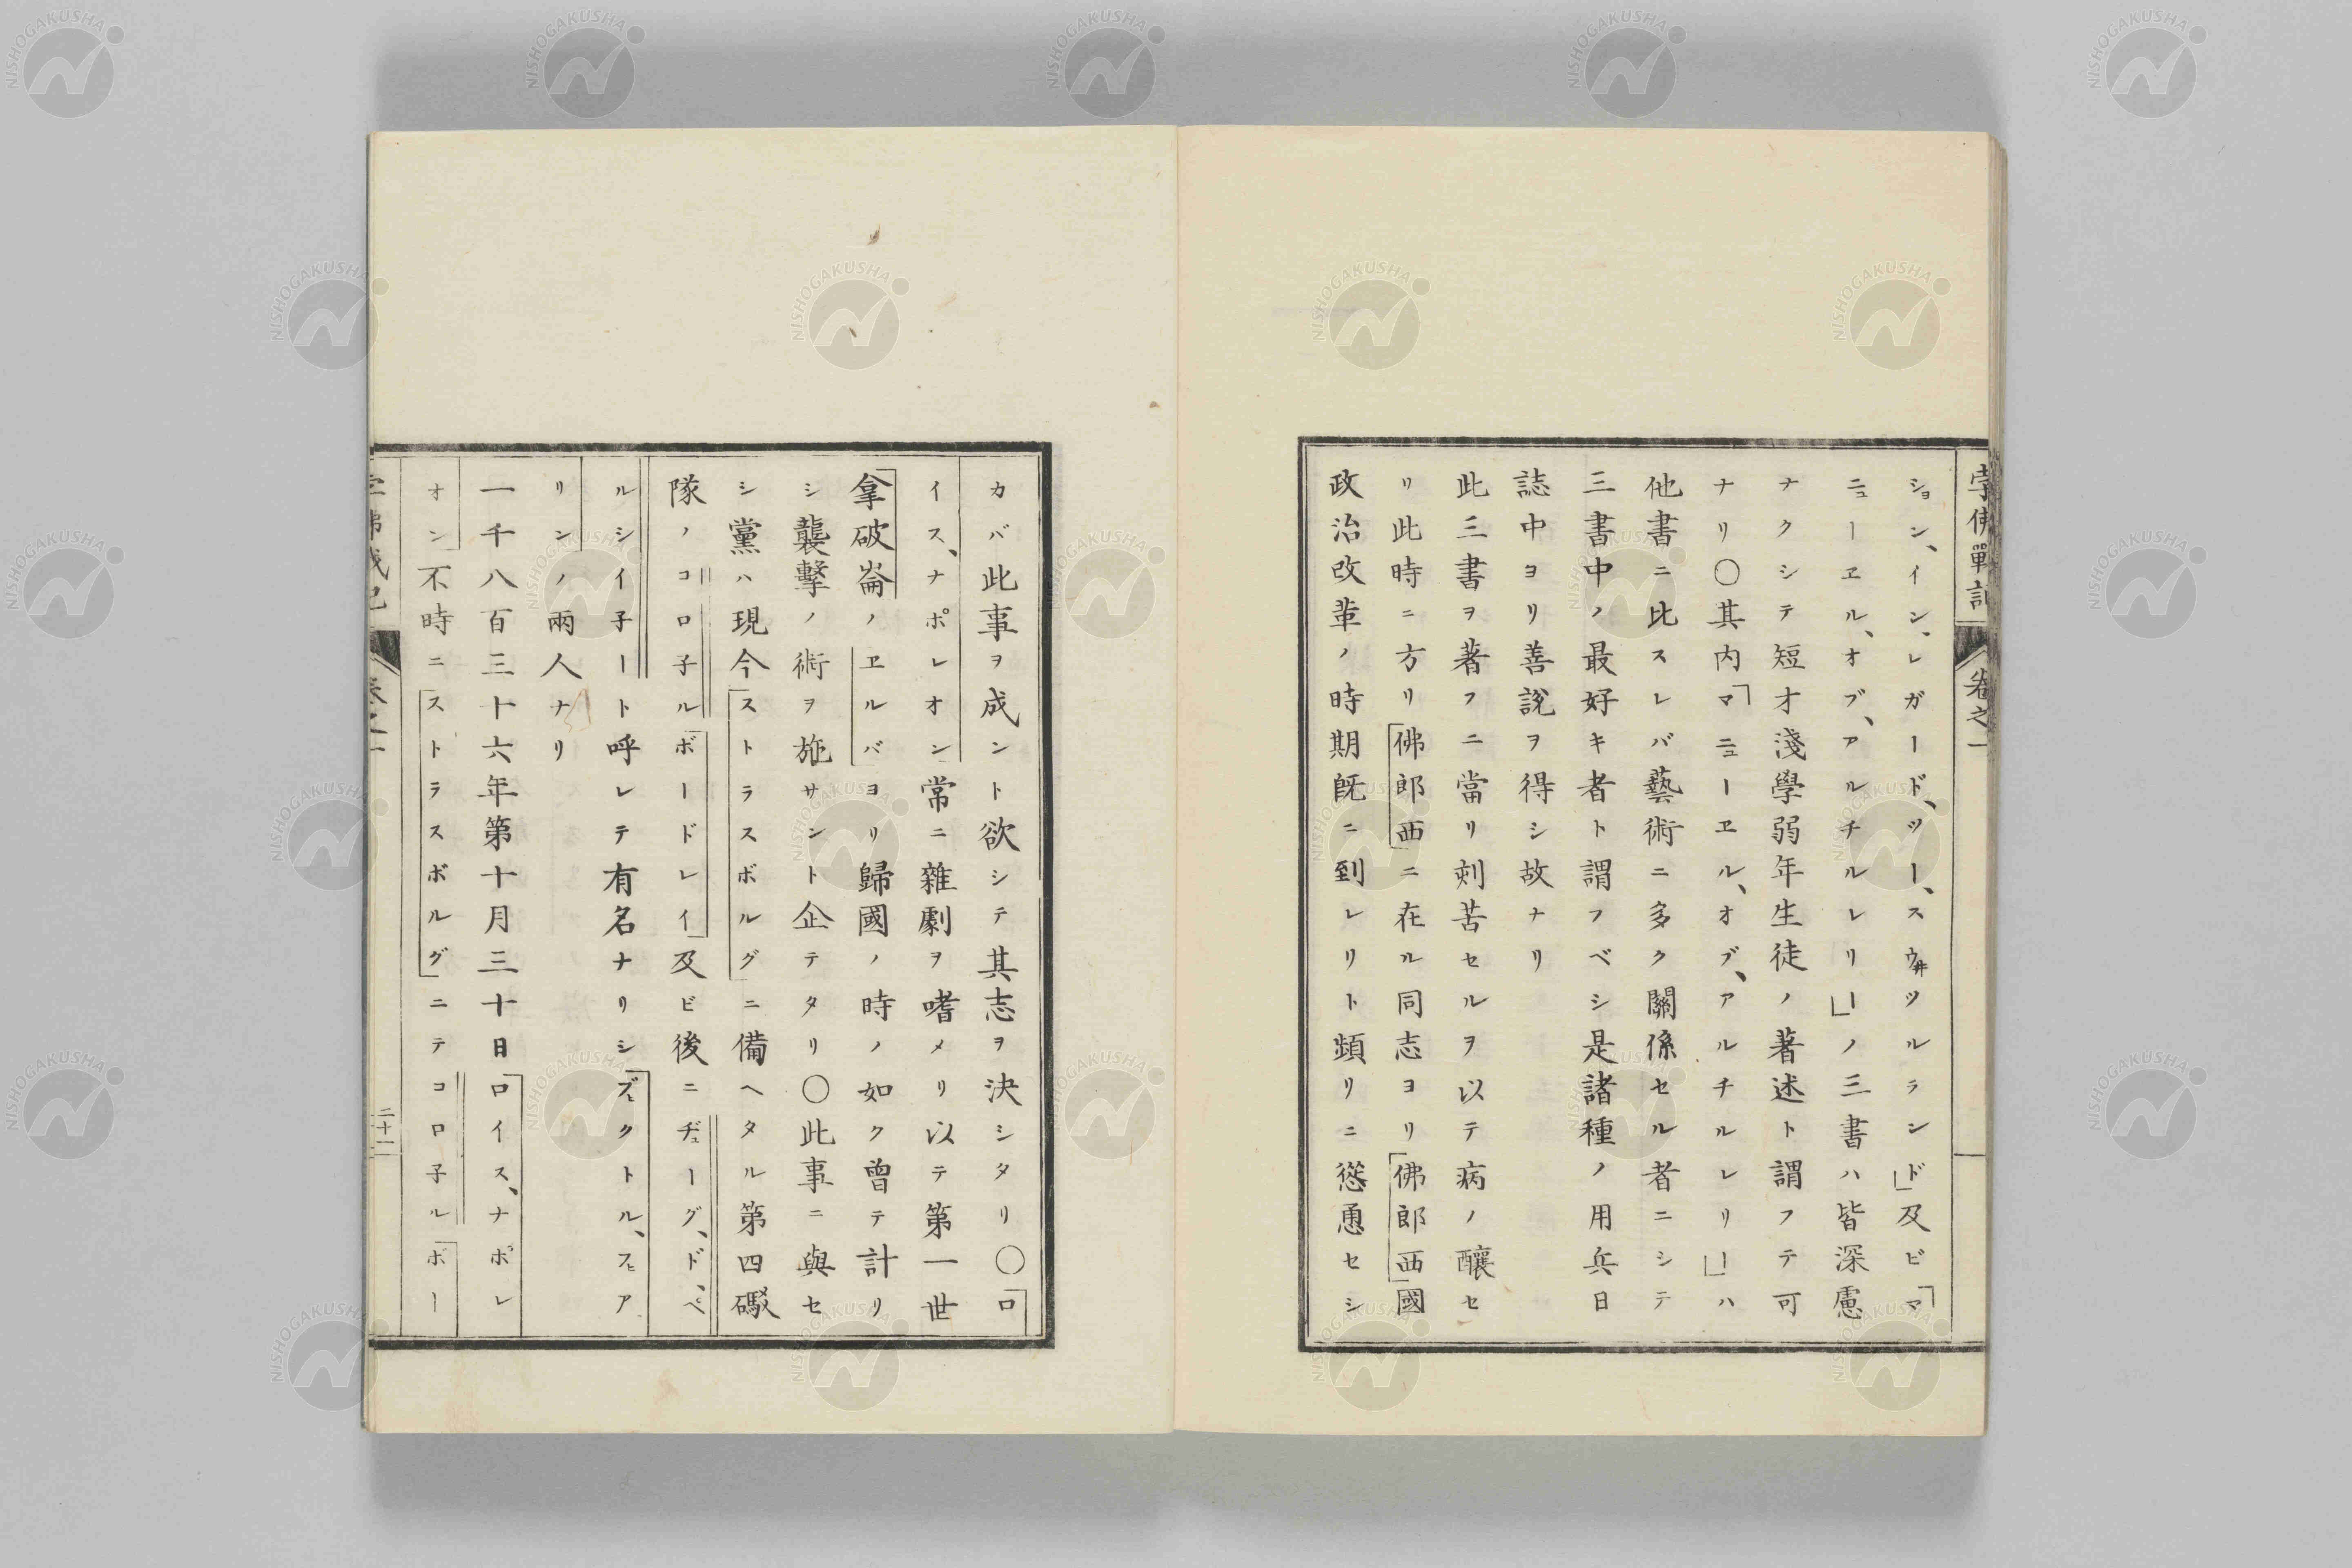 孛佛戰記 卷之一
ション、イン、レガード、ツー、スウ井ツルランド」及ビ「マ
ニューヱル、オブ、アルチルレリー」ノ三書ハ皆深慮
ナクシテ短才淺學弱年生徒ノ著述ト謂フテ可
ナリ〇其内「マニューヱル、オブ、アルチルレリー」ハ
他書ニ比スレバ藝術ニ多ク關係セル者ニシテ
三書中ノ最好キ者ト謂フベシ是諸種ノ用兵日
誌中ヨリ善說ヲ得シ故ナリ
此三書ヲ著フニ當リ刺苦セルヲ以テ病ノ釀セ
リ此時ニ方リ佛郎西ニ在ル同志ヨリ佛郎西國
政治改革ノ時期既ニ到レリト頻リニ慫慂セシ
カバ此事ヲ成ント欲シテ其志ヲ決シタリ〇ロ
イス、ナポレオン常ニ雜劇ヲ嗜メリ以テ第一世
拿破崙ノヱルバヨリ歸國ノ時ノ如ク曾テ計リ
シ襲擊ノ術ヲ施サント企テタリ〇此事ニ與セ
シ黨ハ現今ストラスボルグニ備ヘタル第四礟
隊ノコロ子ルボードレイ及ビ後ニヂューグ、ド、ペ
ルシイ子ート呼レテ有名ナリシヴヒクトル、フヒア
リンノ兩人ナリ
一千八百三十六年第十月三十日ロイス、ナポレ
オン不時ニストラスボルグニテコロ子ルボー
二十一
NISHOGAKUSHA